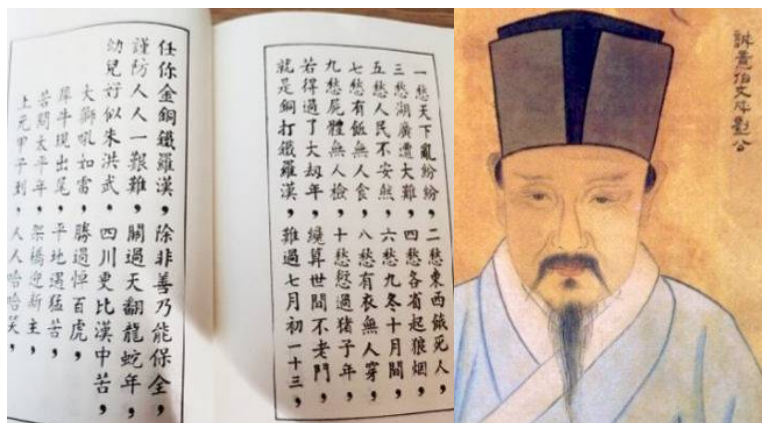 一愁天下亂紛紛，二愁東西餓死人，
三愁湖廣遭大難，四愁各省起狼烟，
五愁人民不安然，六愁九冬十月間，
七愁有飯無人食，八愁有衣無人穿，
九愁屍體無人檢，十愁愆過猪子年，
若得過了大劫年，纔算世間不老門，
就是銅打鐵羅漢，難過七月初一十三，
任你金銅鐵羅漢，除非善乃能保全，
謹防人人一艱難，關過天翻龍蛇年，
幼兒好似朱洪武，四川更比漢中苦，
大獅吼如雷，勝過悼百虎，
犀牛現出尾，平地遇猛苦，
若問太平年，架橋迎新主，
上元甲子到，人人哈哈笑，
誠意伯文成劉公